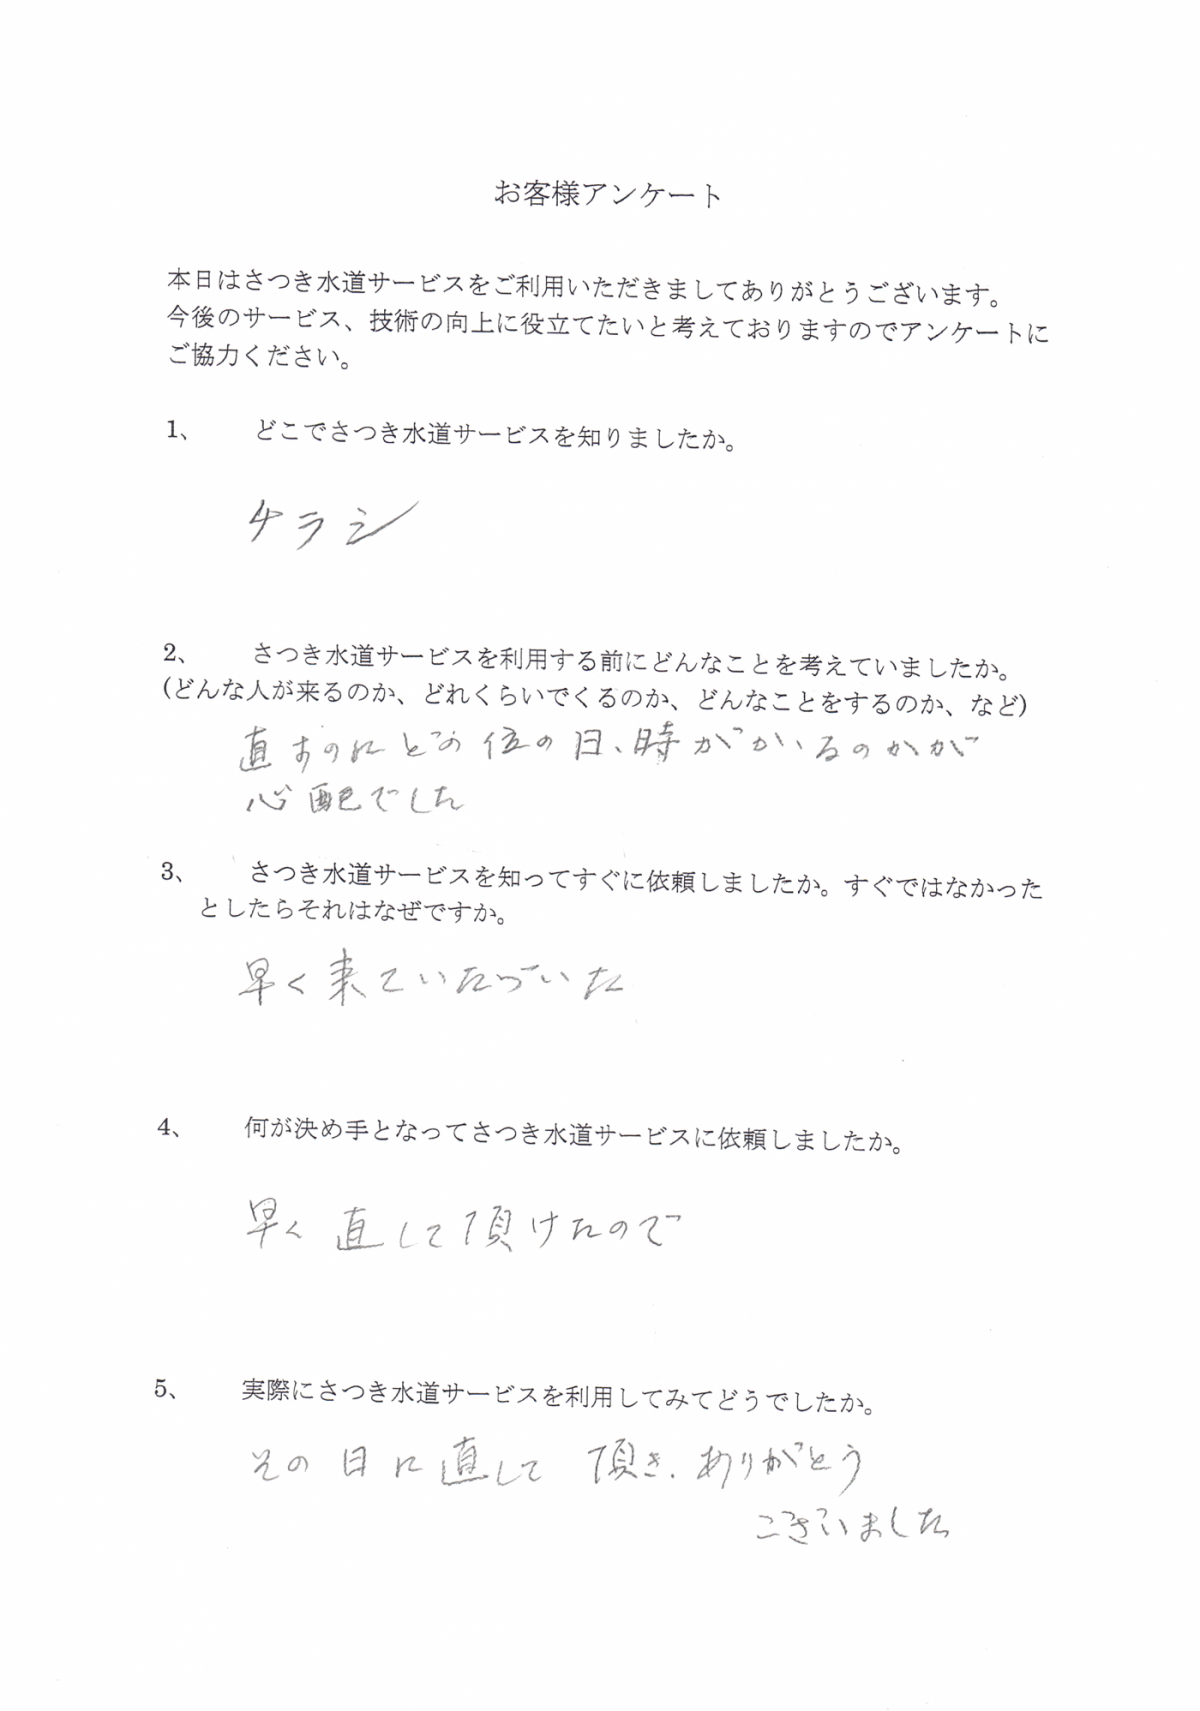 お客様アンケート
本日はさつき水道サービスをご利用いただきましてありがとうございます。
今後のサービス、技術の向上に役立てたいと考えておりますのでアンケートに
ご協力ください。
1、 どこでさつき水道サービスを知りましたか。
チラシ
2、 さつき水道サービスを利用する前にどんなことを考えていましたか。
(どんな人が来るのか、どれくらいでくるのか、どんなことをするのか、など)
直すのにどの位の日、時がかいるのかが
心配でした
3、 さつき水道サービスを知ってすぐに依頼しましたか。すぐではなかった
としたらそれはなぜですか。
早く来ていたづいた
4、 何が決め手となってさつき水道サービスに依頼しましたか。
早く直して頂けたので
5、 実際にさつき水道サービスを利用してみてどうでしたか。
その日に直して頂き、ありがとう
ございました